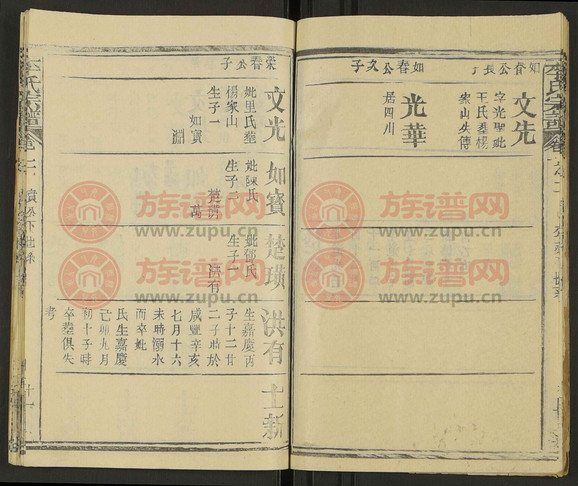 如春公長子
文先
字光聖妣
王氏墓楊
家山失傳
如春公次子
光華
居四川
榮春公子
文光
妣里氏墓
楊家山
生子一
如寳
如寳
妣陳氏
生子二
楚璜
妣鄧氏
生子一
洪有
洪有
生嘉慶丙
子十二廿
二子時於
咸豐辛亥
七月十六
未時溺水
而卒妣
氏生嘉慶
己卯九月
初十子時
卒墓俱失
考
士新
李氏宗譜
族谱网
www.zupu.cn
族谱网
www.zupu.cn
族谱网
www.zupu.cn
族谱网
www.zupu.cn